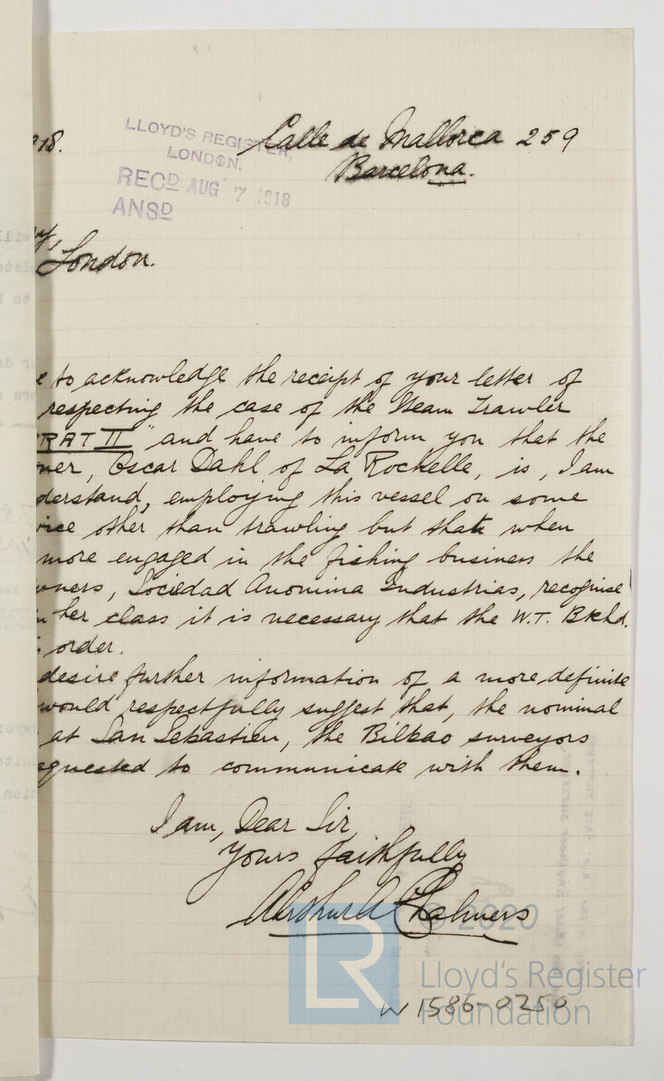 18.
Calle de Mallorca 259
Barcelona.
LLOYD'S REGISTER,
LONDON.
RECD AUG 7 1918
ANSD
London.
to acknowledge the receipt of your letter of
respecting the case of the Steam Trawler
RAT II" and have to inform you that the
ner, Oscar Dahl of La Rochelle, is, I am
derstand, employing this vessel on some
vice other than trawling but that when
more engaged in the fishing business the
wners, Sociedad Anonima Industrias, recognise
her class it is necessary that the W.T. Bkhd.
order.
desire further information of a more definite
would respectfully suggest that, the nominal
at San Sebastien, the Bilbao surveyors
equested to communicate with them.
I am, Dear Sir,
Yours faithfully
Arthur A Chalmers
© 2020
Lloyd's Register
Foundation
W1586-0250